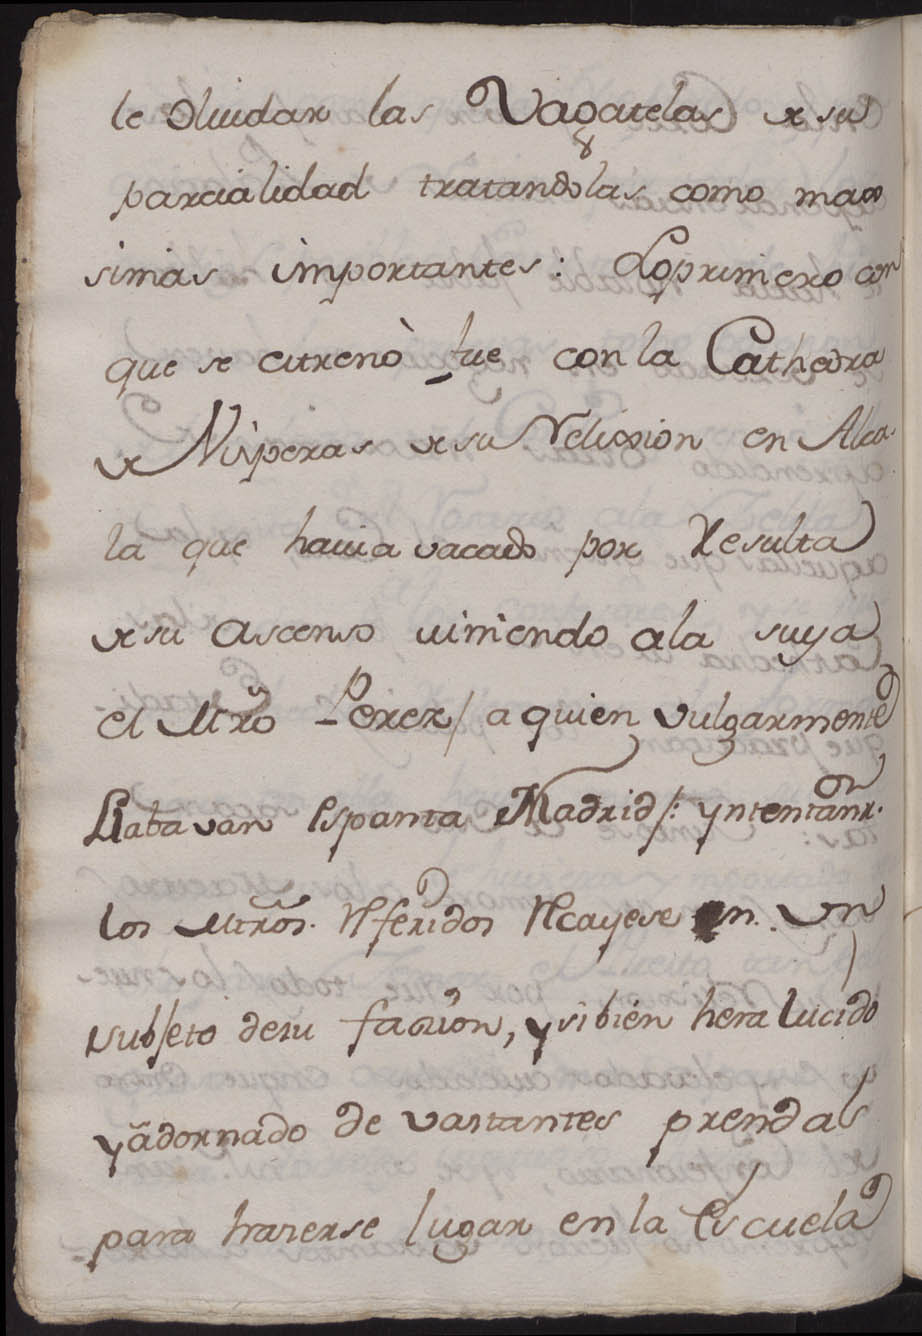 le olvidar las Vagatelas de su
parcialidad tratandolas como max
simas importantes: Lo primero con
que se estrenò fue con la Cathedra
de Visperas de su Religion en Alca-
la que havia vacado por Resulta
de su Ascenso viniendo a la suya
el Mtro Perez / a quien vulgarmente
Llabavan Espanta Madrid /: yntentaron
los Mtros. Referidos Recayese en un
subjeto de su facion, y si bien hera lucido
y adornado de vastantes prendas
para hazerse lugar en la Escuela